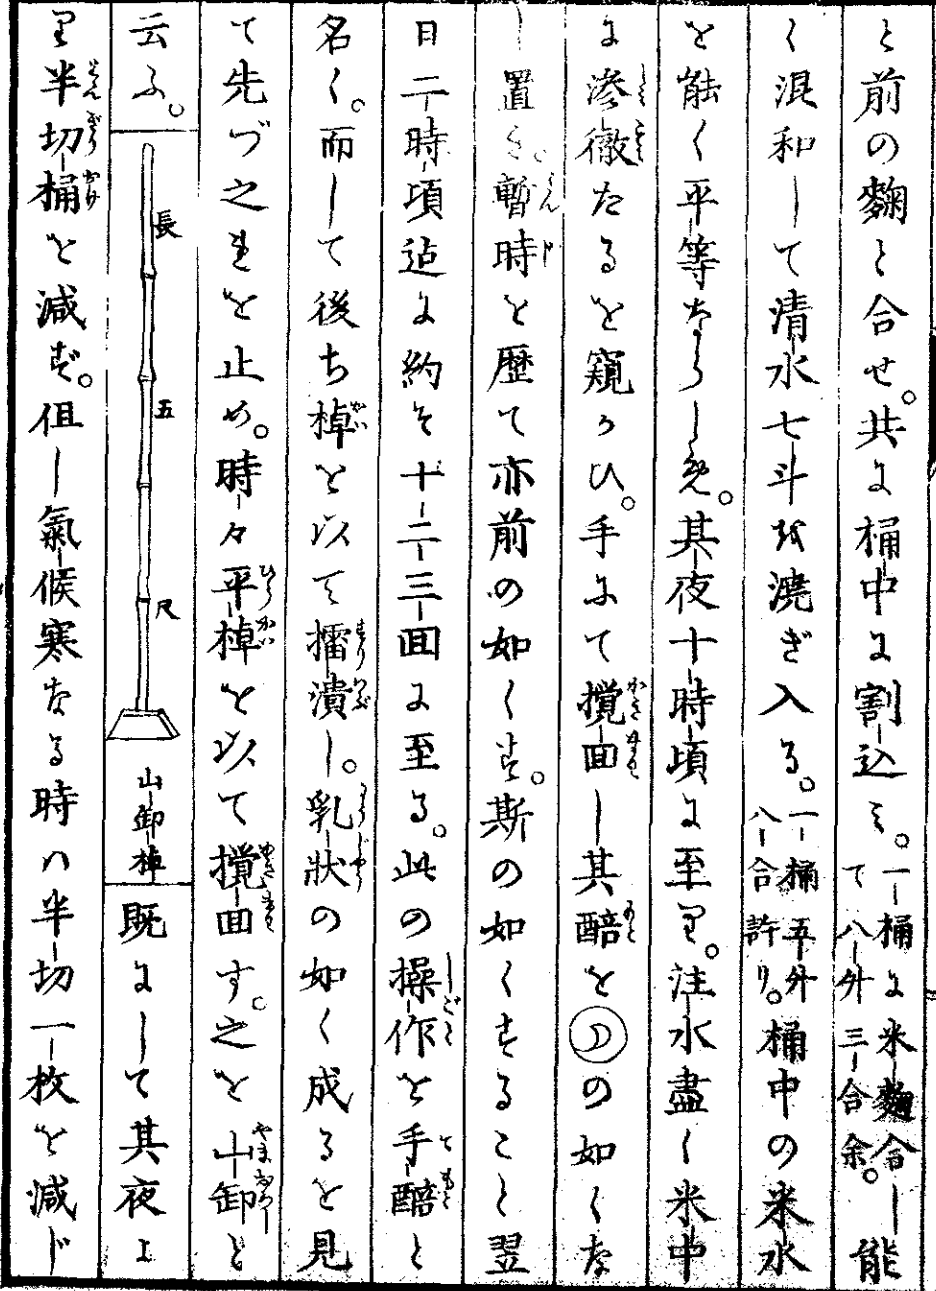 と前の麴と合せ。共に桶中に割込ミ。一桶に米麴合して八升三合余。能
く混和して清水七斗を澆ぎ入る。一桶五升八合許り。桶中の米水
を能く平等ならしむ。其夜十時頃に至り。注水盡く米中
に滲徹たるを窺かひ。手にて攪囬し其醅をの如くな
し置き。暫時を歴て亦前の如くす。斯の如くすること翌
日二時頃迠に約そ十二三囬に至る。此の操作を手醅と
名く。而して後ち棹を以て擂潰し。乳狀の如く成るを見
て先づ之れを止め。時々平棹を以て攪囬す。之を山卸と
云ふ。
長
五
尺
山卸棹
既にして其夜よ
り半切桶を減ず。但し氣候寒なる時ハ半切一枚を減じ